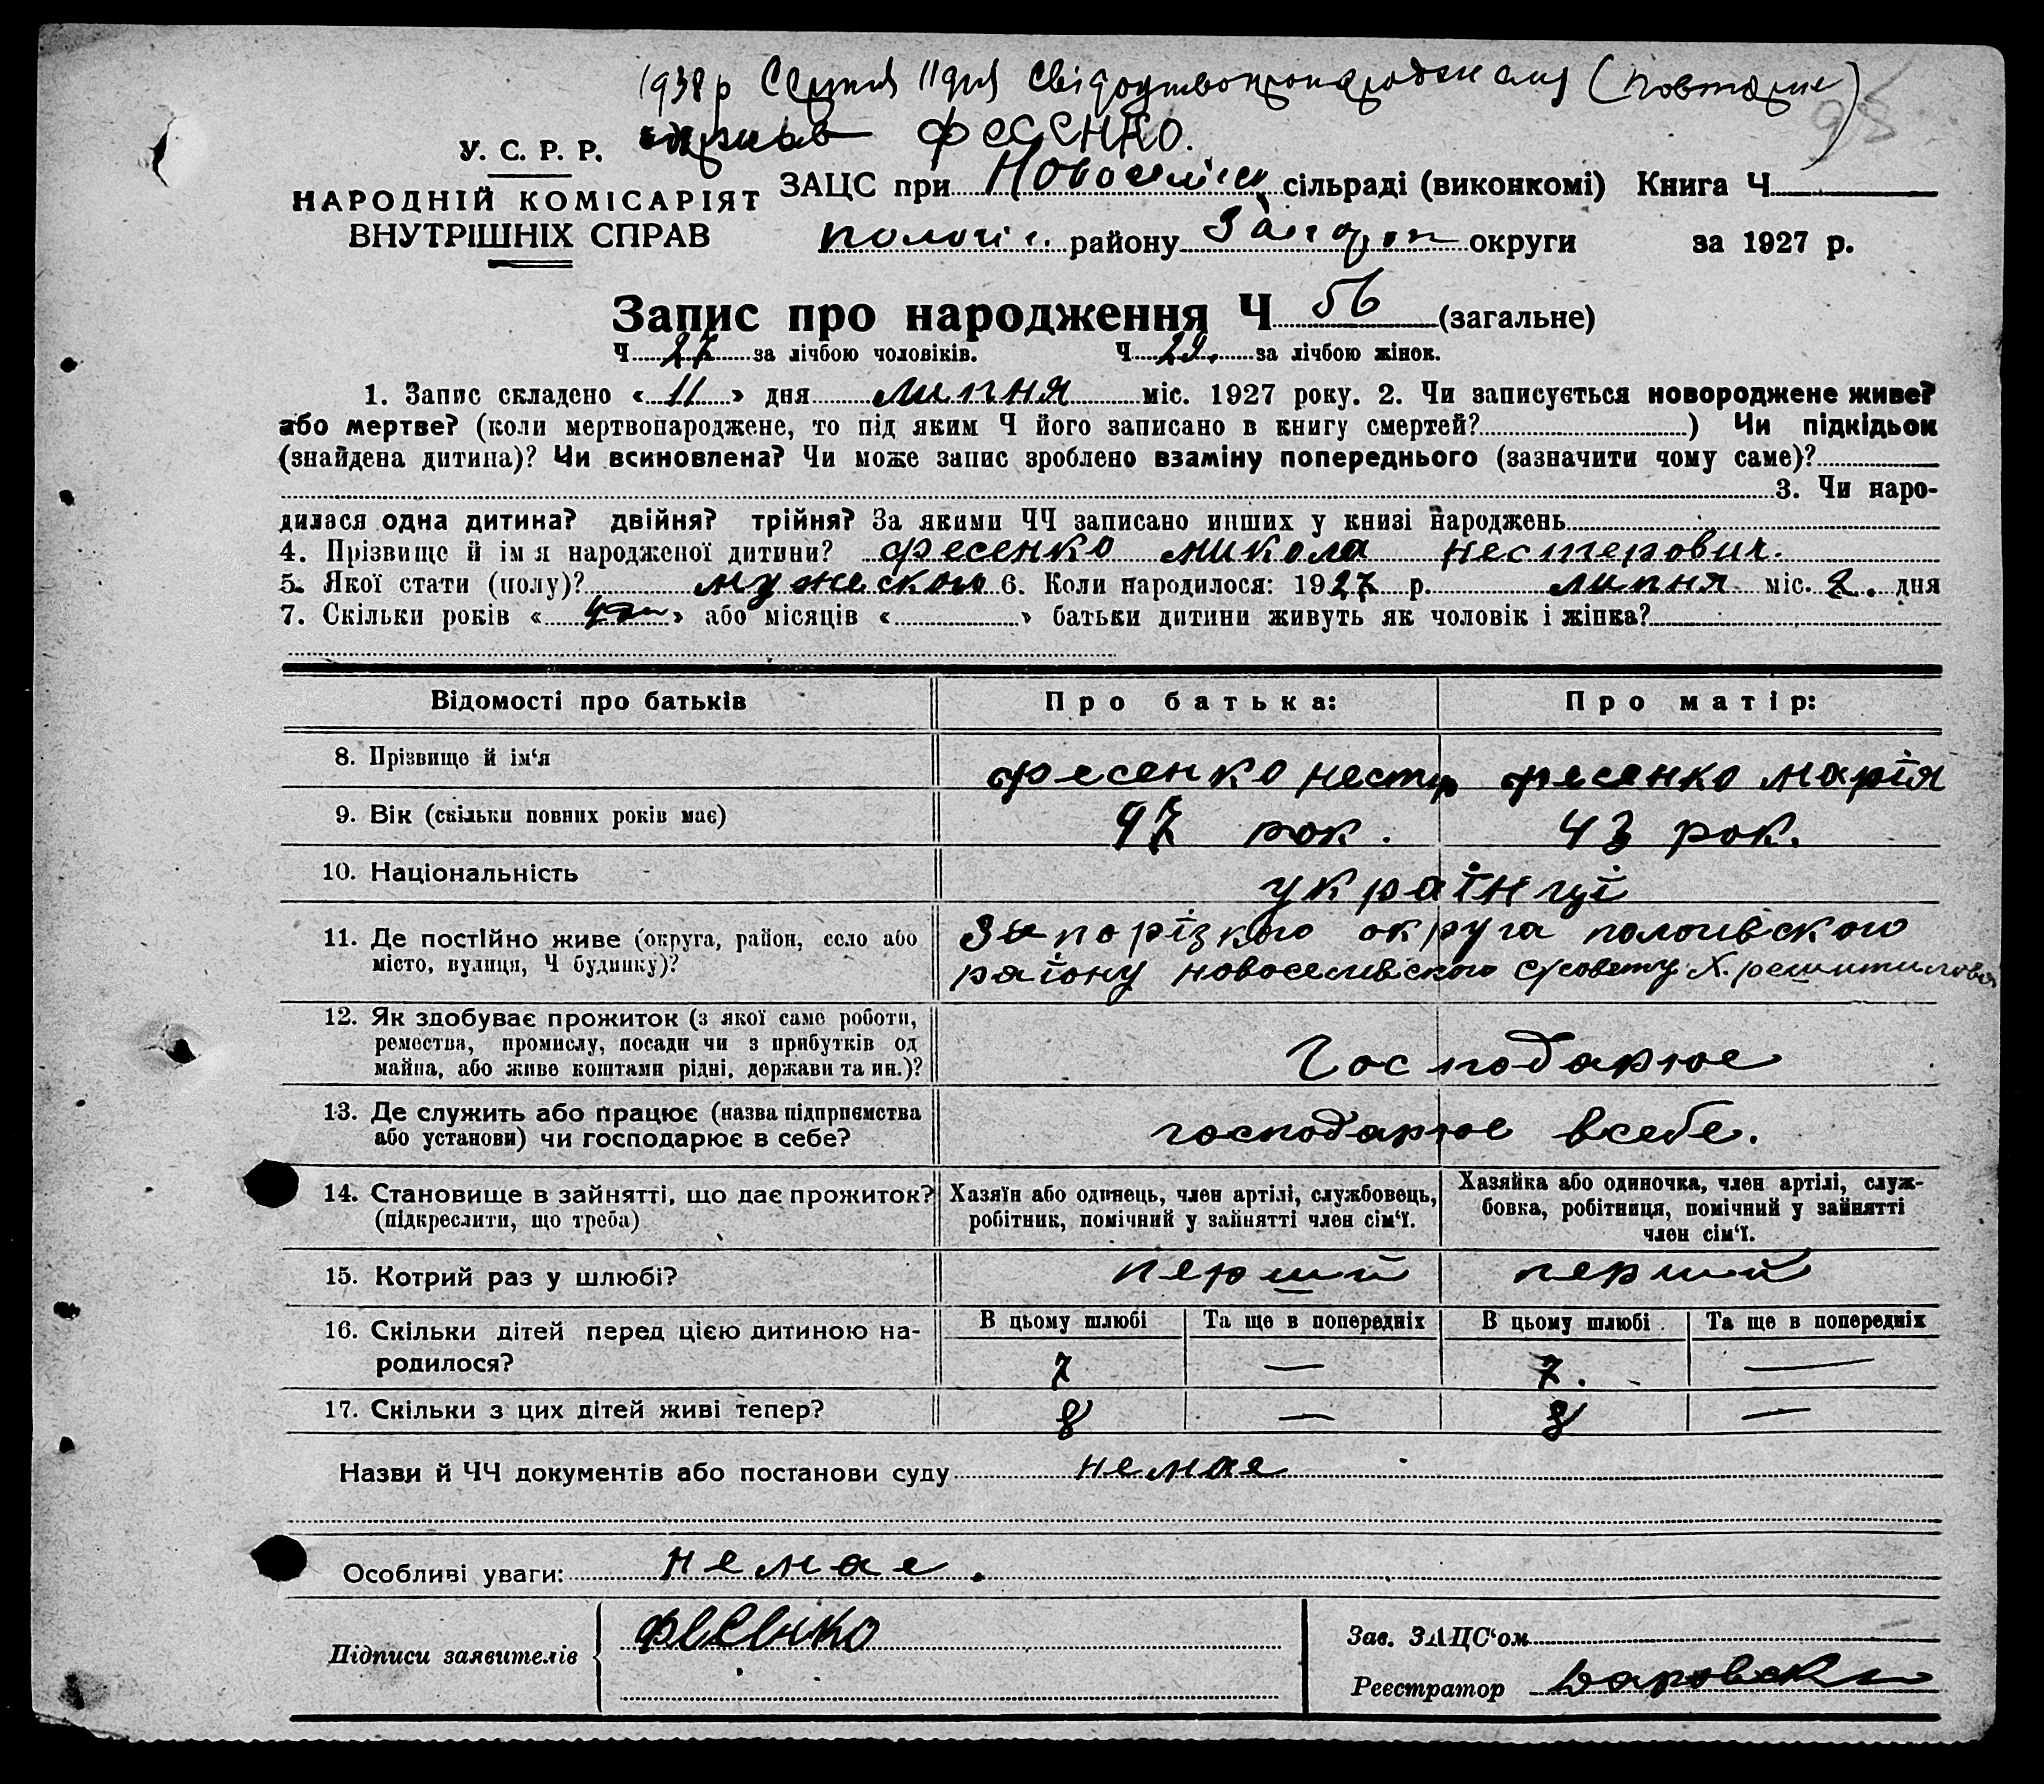 1938 р Серпня 11 дня Свідоцтво про народження (повторне)
98
одержав ФЕСЕНКО.
У. С. Р. Р.
НАРОДНІЙ КОМІСАРІЯТ
ВНУТРІШНІХ СПРАВ
ЗАЦС при Новоселівс сільраді (виконкомі) Книга Ч
район у округи за 1927 р.
Запис про народження Ч 56 (загальне)
Ч 27 за лічбою чоловіків. Ч 29. за лічбою жінок.
1. Запис складено « 11 » дня липня міс. 1927 року. 2. Чи записується новороджене живе?
або мертве? (коли мертвонароджене, то під яким Ч його записано в книгу смертей? ) Чи підкідьок
(знайдена дитина)? Чи всиновлена? Чи може запис зроблено взаміну попереднього (зазначити чому саме)?
3. Чи наро-
дилася одна дитина? двійня? трійня? За якими ЧЧ записано инших у книзі народжень
4. Прізвище й ім я народженої дитини? Фесенко Микола Нестерович.
5. Якої стати (полу)? мужеского 6. Коли народилося: 1927 р. липня міс. 2. дня
7. Скільки років « » або місяців « » батьки дитини живуть як чоловік і жінка?
Відомості про батьків Про батька: Про матір:
8. Прізвище й ім'я Фесенко Нестер Фесенко Марія
9. Вік (скільки повних років має) 47 рок. 43 рок.
10. Національність українці
11. Де постійно живе (округа, район, село або
місто, вулиця, Ч будинку)?
Запорізкого округа пологівского
району новоселивского с/совету Х. решитилова
12. Як здобуває прожиток (з якої саме роботи,
ремества, промислу, посади чи з прибутків од
майна, або живе коштами рідні, держави та ин.)?
Господарюе
13. Де служить або працює (назва підприємства
або установи) чи господарює в себе?
господарюе всебе.
14. Становище в зайнятті, що дає прожиток?
(підкреслити, що треба)
Хазяїн або одинець, член артілі, службовець,
робітник, помічний у зайнятті член сім'ї.
Хазяйка або одиночка, член артілі, служ-
бовка, робітниця, помічний у зайнятті
член сім'ї.
15. Котрий раз у шлюбі? перший перший
16. Скільки дітей перед цією дитиною на-
родилося?
В цьому шлюбі Та ще в попередніх В цьому шлюбі Та ще в попередніх
7 — 7. —
17. Скільки з цих дітей живі тепер? 8 — 8 —
Назви й ЧЧ документів або постанови суду немае
Особливі уваги: немае.
Підписи заявителів Фесенко
Зав. ЗАЦС'ом
Реєстратор